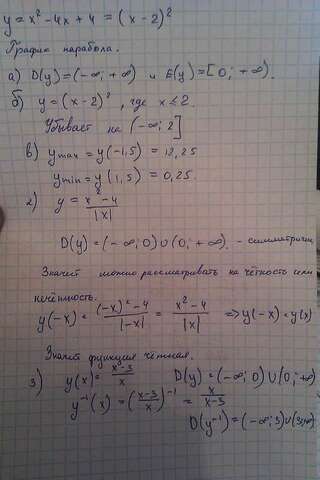 y = x² - 4x + 4 = (x - 2)²
График парабола.
а) D(y) = (-∞; +∞) и E(y) = [0; +∞).
б) y = (x - 2)², где x ≤ 2.
Убывает на (-∞; 2]
в) y max = y(-1,5) = 12,25
y min = y(1,5) = 0,25.
2) y = (x² - 4)/|x|
D(y) = (-∞; 0) ∪ (0; +∞). - симметричн
Значит можно рассматривать на чётность или
нечётность.
y(-x) = ((-x)² - 4)/|-x| = (x² - 4)/|x| => y(-x) = y(x)
Значит функция чётная.
3) y(x) = (x-3)/x D(y) = (-∞; 0) ∪ (0; +∞)
y⁻¹(x) = ((x-3)/x)⁻¹ = x/(x-3)
D(y⁻¹) = (-∞; 3) ∪ (3; +∞)